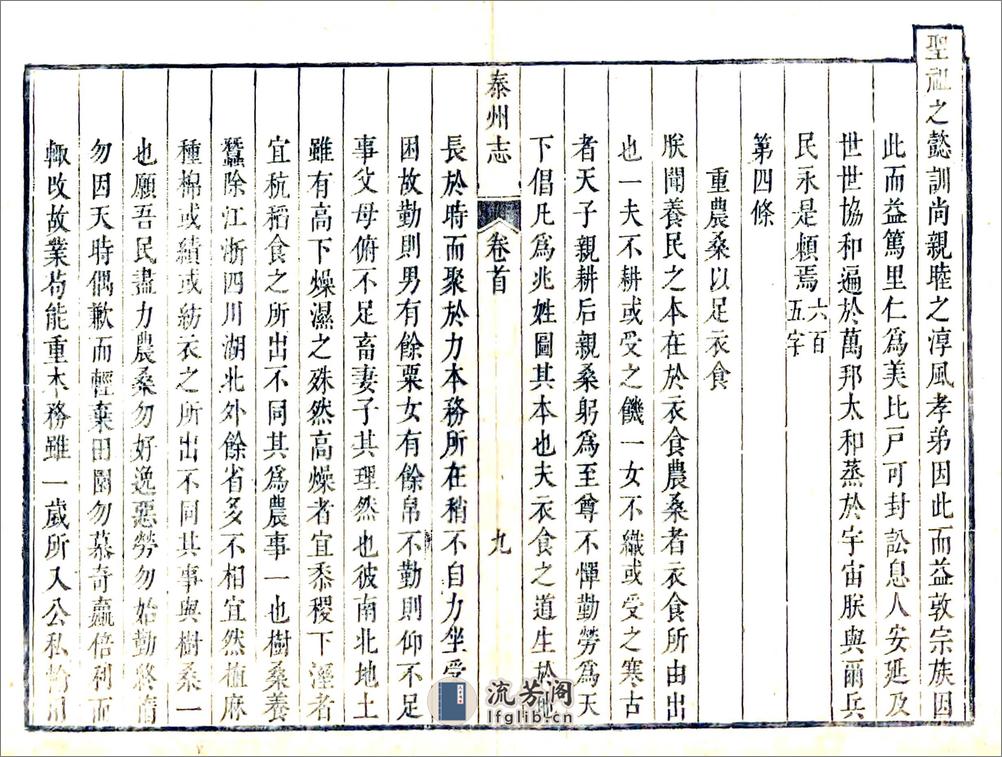 聖祖之懿訓尚親睦之淳風孝弟因此而益敦宗族因
此而益篤里仁為美比戶可封訟息人安延及
世世協和遍於萬邦太和蒸於宇宙朕與爾兵
民永是賴焉六百
五字
第四條
重農桑以足衣食
朕聞養民之本在於衣食農桑者衣食所由出
也一夫不耕或受之饑一女不織或受之寒古
者天子親耕后親桑躬為至尊不憚勤勞為天
下倡凡為兆姓圖其本也夫衣食之道生於
泰州志
卷首
九
長於時而聚於力本務所在稍不自力坐受
困故勤則男有餘粟女有餘帛不勤則仰不足
事父母俯不足畜妻子其理然也彼南北地土
雖有高下燥濕之殊然高燥者宜黍稷下溼者
宜秔稻食之所出不同其為農事一也樹桑養
蠶除江浙四川湖北外餘省多不相宜然植麻
種棉或績或紡衣之所出不同其事與樹桑一
也願吾民盡力農桑勿好逸惡勞勿始勤終惰
勿因天時偶歉而輕棄田園勿慕奇贏倍利而
輙改故業苟能重本務雖一歲所入公私
流芳阁
lfglib.cn